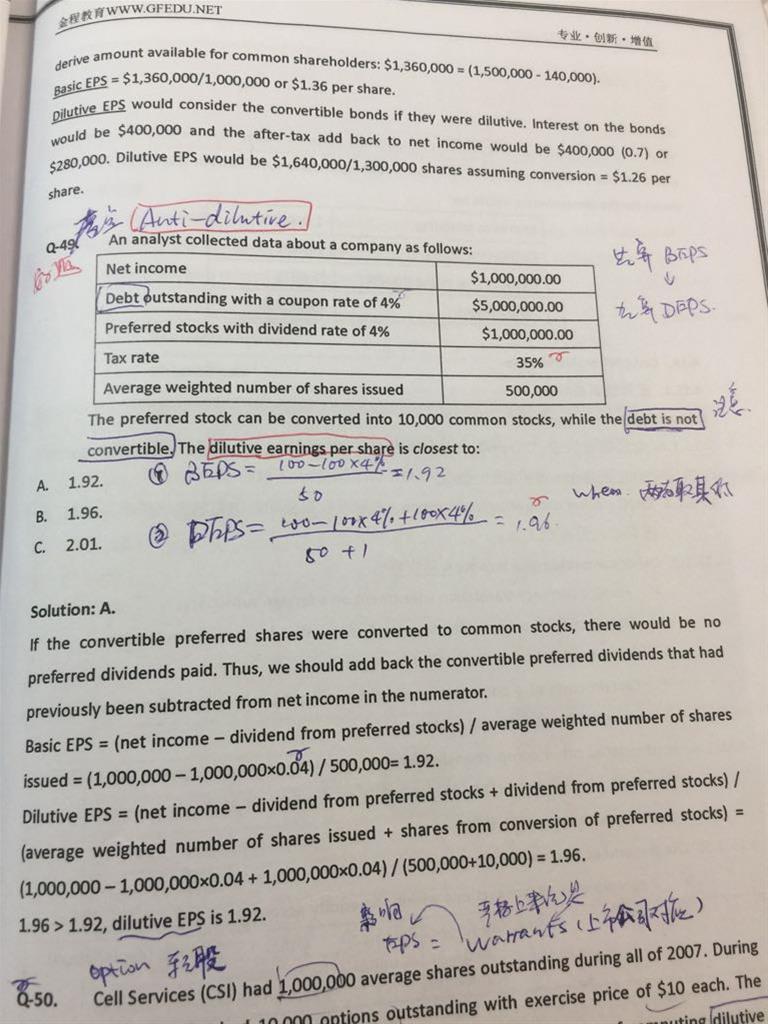 金程教育WWW.GFEDU.NET
专业·创新·增值
derive amount available for common shareholders: $1,360,000 = (1,500,000 - 140,000).
Basic EPS = $1,360,000/1,000,000 or $1.36 per share.
Dilutive EPS would consider the convertible bonds if they were dilutive. Interest on the bonds
would be $400,000 and the after-tax add back to net income would be $400,000 (0.7) or
$280,000. Dilutive EPS would be $1,640,000/1,300,000 shares assuming conversion = $1.26 per
share.
Anti-dilutive.
Q-49. An analyst collected data about a company as follows:
Net income $1,000,000.00
Debt outstanding with a coupon rate of 4% $5,000,000.00
Preferred stocks with dividend rate of 4% $1,000,000.00
Tax rate 35%
Average weighted number of shares issued 500,000
BEPS
↓
DEPS.
The preferred stock can be converted into 10,000 common stocks, while the debt is not
注意.
convertible. The dilutive earnings per share is closest to:
A. 1.92.
B. 1.96.
C. 2.01.
① BEPS = 100-100×4% / 50 = 1.92
② DEPS = 100-100×4%+100×4% / 50+1 = 1.96.
when 两者取其
Solution: A.
If the convertible preferred shares were converted to common stocks, there would be no
preferred dividends paid. Thus, we should add back the convertible preferred dividends that had
previously been subtracted from net income in the numerator.
Basic EPS = (net income – dividend from preferred stocks) / average weighted number of shares
issued = (1,000,000 – 1,000,000×0.04) / 500,000= 1.92.
Dilutive EPS = (net income – dividend from preferred stocks + dividend from preferred stocks) /
(average weighted number of shares issued + shares from conversion of preferred stocks) =
(1,000,000 – 1,000,000×0.04 + 1,000,000×0.04) / (500,000+10,000) = 1.96.
1.96 > 1.92, dilutive EPS is 1.92.
影响
EPS = warrants (上市公司对应)
option
Q-50. Cell Services (CSI) had 1,000,000 average shares outstanding during all of 2007. During
10,000 options outstanding with exercise price of $10 each. The
dilutive